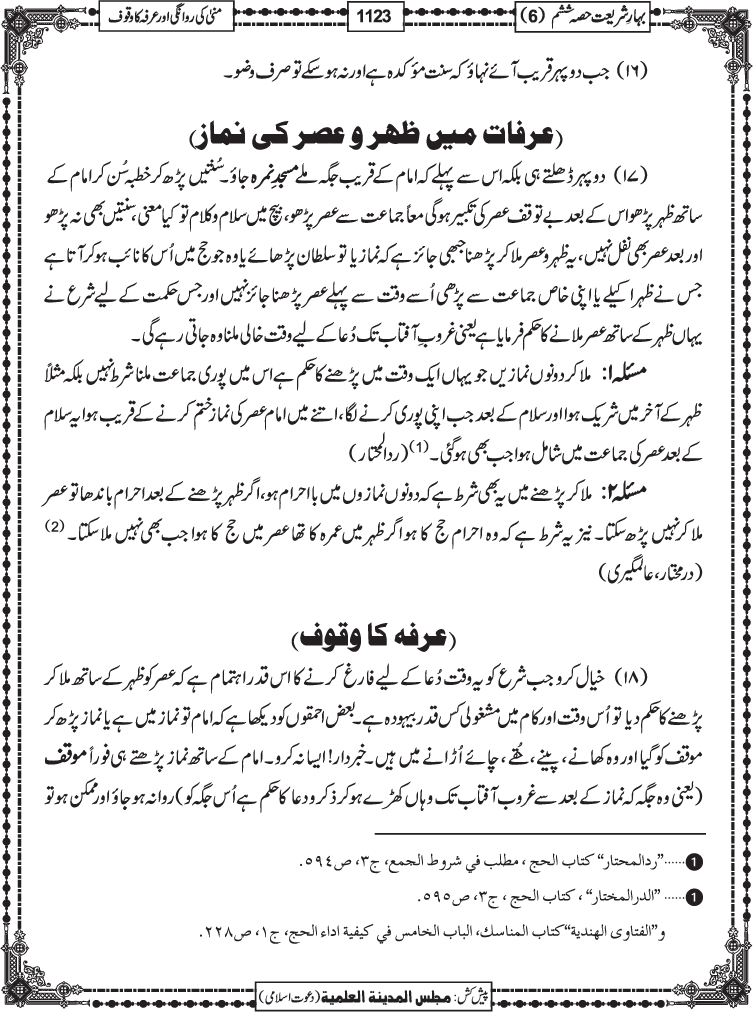 بہارِ شریعت حصہ ششم (6)
1123
منٰی کی روانگی اور عرفہ کا وقوف
(۱۶) جب دوپہر قریب آئے نہاؤ کہ سنت مؤکدہ ہے اور نہ ہوسکے تو صرف وضو۔
(عرفات میں ظہر و عصر کی نماز)
(۱۷) دوپہر ڈھلتے ہی بلکہ اس سے پہلے کہ امام کے قریب جگہ ملے مسجدِ نمرہ جاؤ۔ سُنتیں پڑھ کر خطبہ سُن کر امام کے
ساتھ ظہر پڑھو اس کے بعد بے توقف عصر کی تکبیر ہوگی معاً جماعت سے عصر پڑھو، بیچ میں سلام و کلام تو کیا معنی، سنتیں بھی نہ پڑھو
اور بعد عصر بھی نفل نہیں، یہ ظہر و عصر ملا کر پڑھنا جبھی جائز ہے کہ نماز یا تو سلطان پڑھائے یا وہ جو حج میں اُس کا نائب ہو کر آتا ہے
جس نے ظہر اکیلے یا اپنی خاص جماعت سے پڑھی اُسے وقت سے پہلے عصر پڑھنا جائز نہیں اور جس حکمت کے لیے شرع نے
یہاں ظہر کے ساتھ عصر ملانے کا حکم فرمایا ہے یعنی غروبِ آفتاب تک دُعا کے لیے وقت خالی ملنا وہ جاتی رہے گی۔
مسئلہ ۱: ملا کر دونوں نمازیں جو یہاں ایک وقت میں پڑھنے کا حکم ہے اس میں پوری جماعت ملنا شرط نہیں بلکہ مثلاً
ظہر کے آخر میں شریک ہوا اور سلام کے بعد جب اپنی پوری کرنے لگا، اتنے میں امام عصر کی نماز ختم کرنے کے قریب ہوا یہ سلام
کے بعد عصر کی جماعت میں شامل ہوا جب بھی ہوگئی۔ (1) (ردالمحتار)
مسئلہ ۲: ملا کر پڑھنے میں یہ بھی شرط ہے کہ دونوں نمازوں میں بااحرام ہو، اگر ظہر پڑھنے کے بعد احرام باندھا تو عصر
ملا کر نہیں پڑھ سکتا۔ نیز یہ شرط ہے کہ وہ احرام حج کا ہو اگر ظہر میں عمرہ کا تھا عصر میں حج کا ہوا جب بھی نہیں ملا سکتا۔ (2)
(درمختار، عالمگیری)
(عرفہ کا وقوف)
(۱۸) خیال کرو جب شرع کو یہ وقت دُعا کے لیے فارغ کرنے کا اس قدر اہتمام ہے کہ عصر کو ظہر کے ساتھ ملا کر
پڑھنے کا حکم دیا تو اُس وقت اور کام میں مشغولی کس قدر بیہودہ ہے۔ بعض احمقوں کو دیکھا ہے کہ امام تو نماز میں ہے یا نماز پڑھ کر
موقف کو گیا اور وہ کھانے، پینے، حُقّے، چائے اُڑانے میں ہیں۔ خبردار! ایسا نہ کرو۔ امام کے ساتھ نماز پڑھتے ہی فوراً موقف
(یعنی وہ جگہ کہ نماز کے بعد سے غروبِ آفتاب تک وہاں کھڑے ہو کر ذکر و دعا کا حکم ہے اُس جگہ کو) روانہ ہو جاؤ اور ممکن ہو تو
1 ......”ردالمحتار“ کتاب الحج ، مطلب في شروط الجمع، ج۳، ص۵۹۴.
1 ......”الدرالمختار“ ، کتاب الحج ، ج۳، ص۵۹۵.
و”الفتاوی الهندية“ کتاب المناسك، الباب الخامس في كيفية اداء الحج، ج۱، ص۲۲۸.
پیش کش: مجلس المدينة العلمية (دعوت اسلامی)